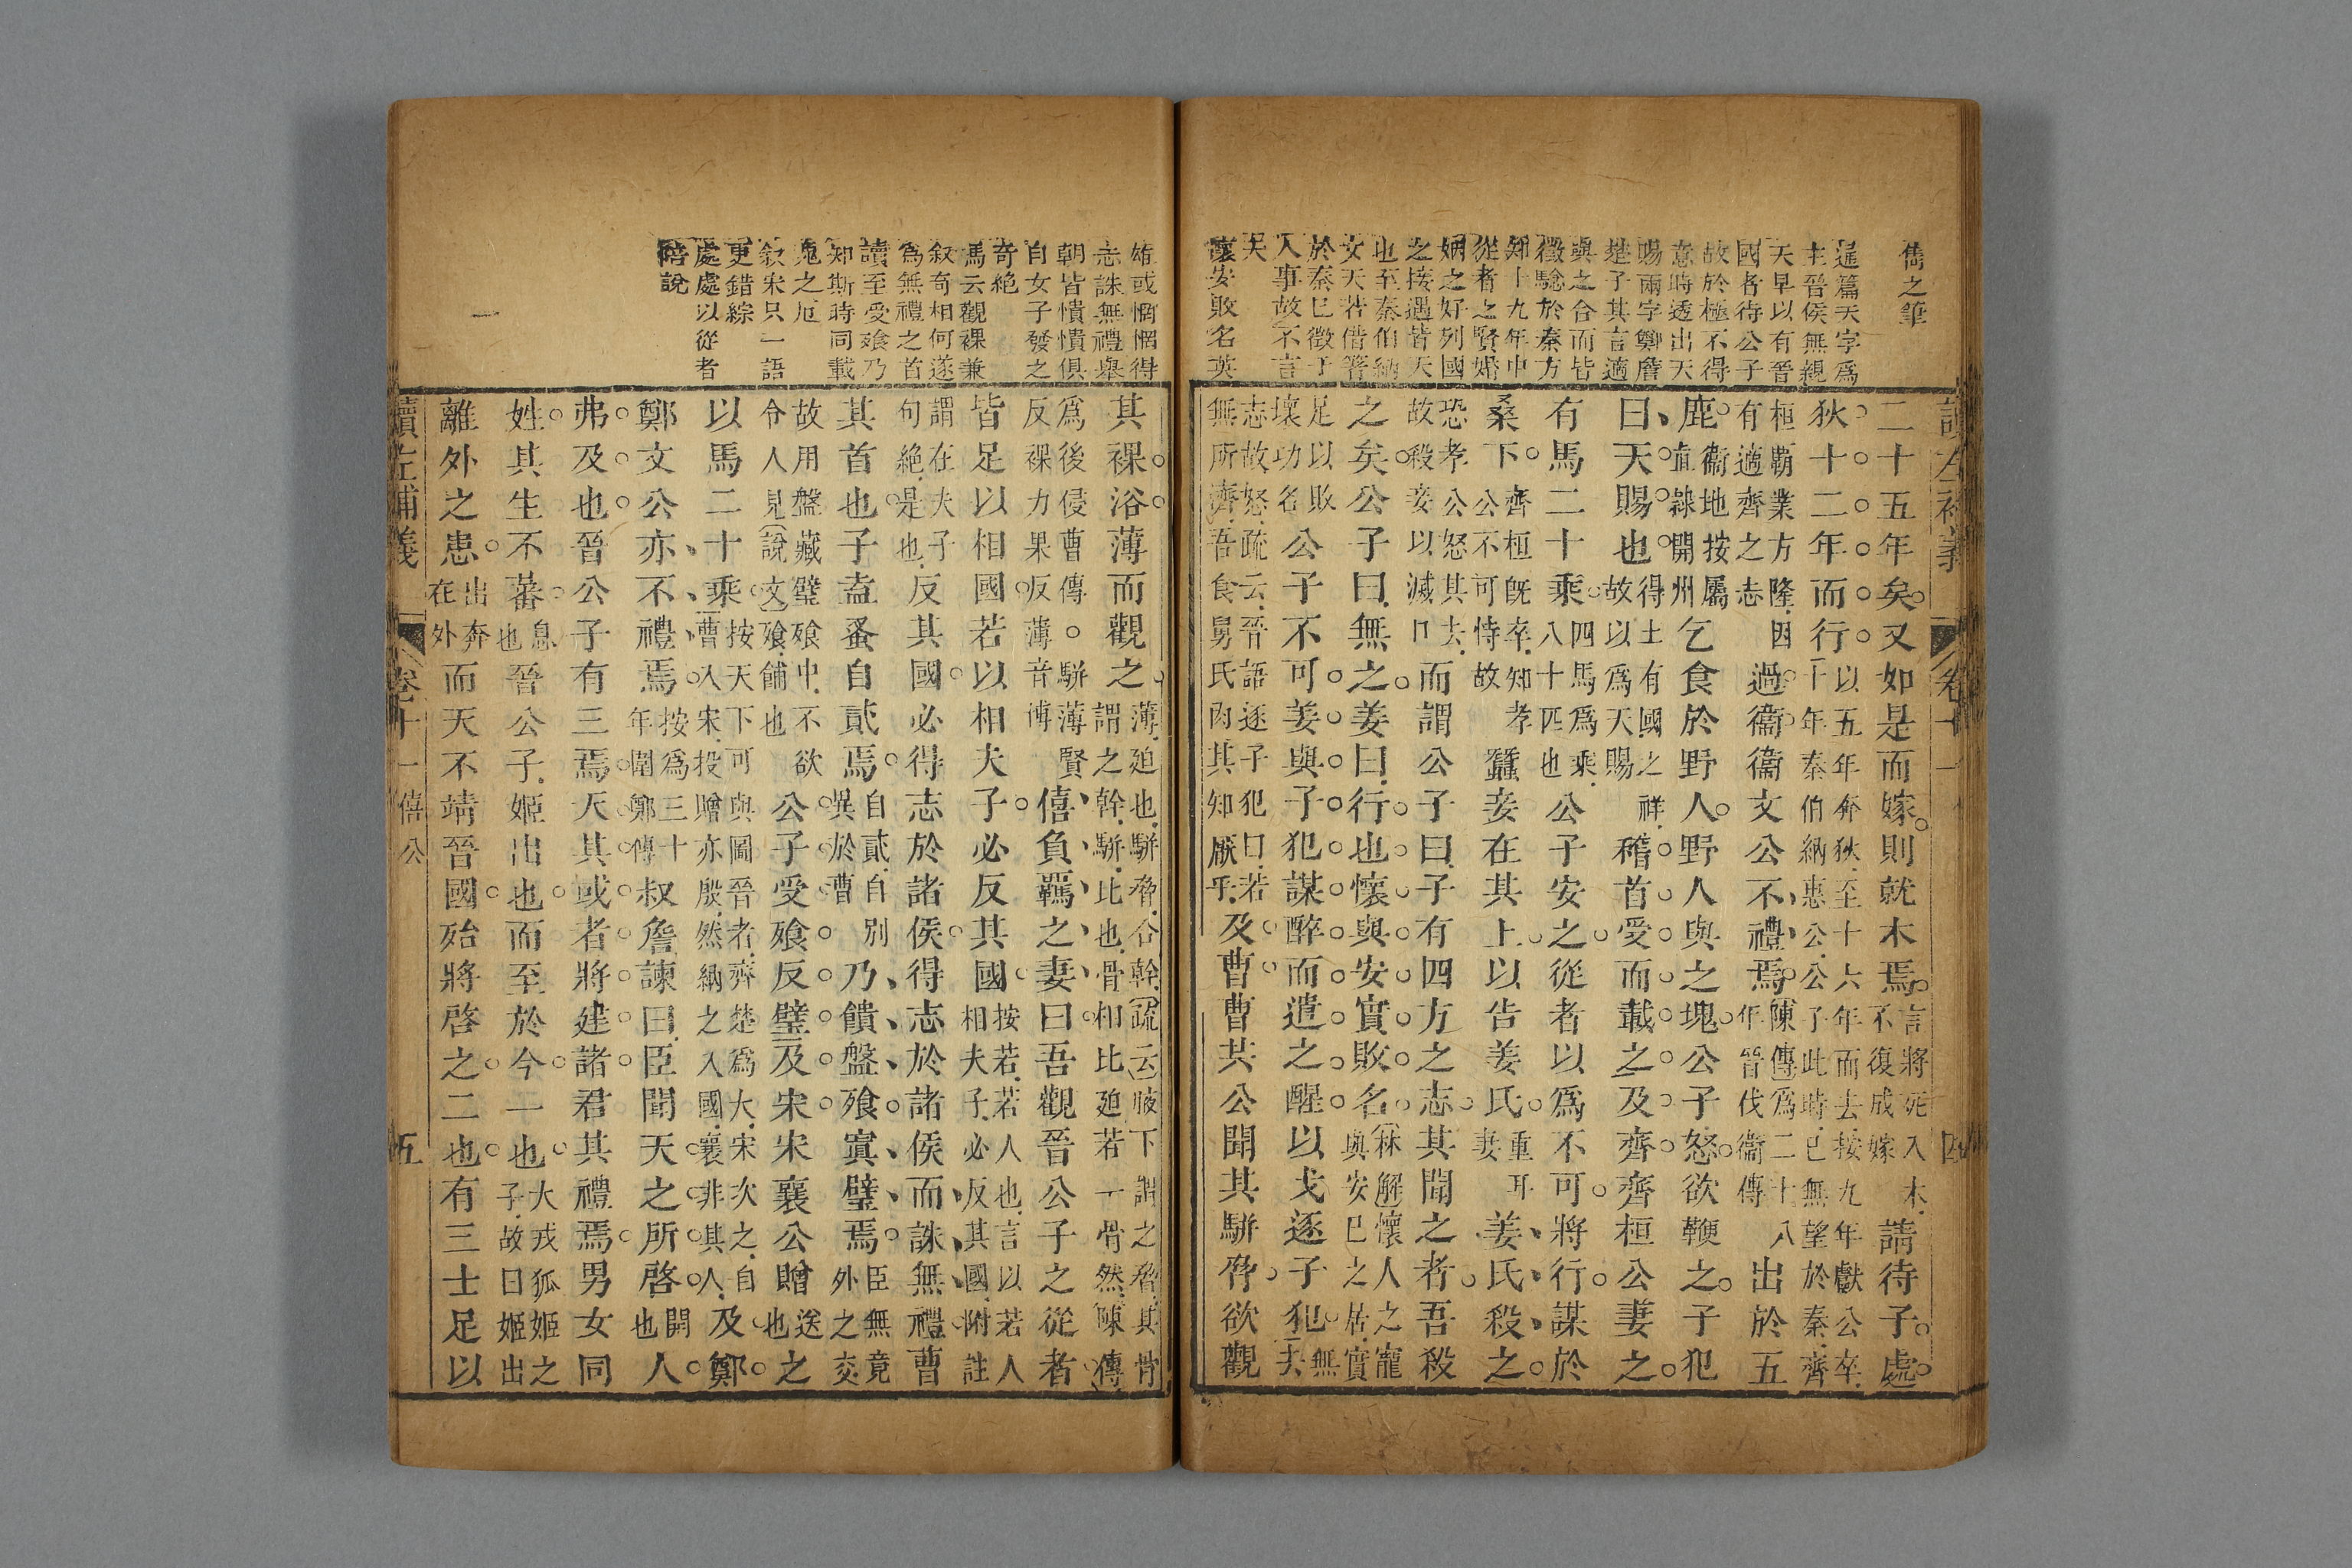 雋之筆
是篇天字爲
主晉侯無親
天早以有晉
國者待公子
故於極不得
意時透出天
賜兩字鄭詹
楚子其言適
與之合而皆
徵驗於秦方
知十九年中
從者之賢婚
姻之好列國
之接遇皆天
也至秦伯納
女天若借箸
於秦已徵于
人事故不言
天
懷安敗名英
讀左補義
卷十一
四
二十五年矣又如是而嫁則就木焉言將死入木不復成嫁請待子處
狄十二年而行以五年奔狄至十六年而去按九年獻公卒齊
十年秦伯納惠公公子此時已無望於秦
桓霸業方隆因有適齊之志過衞衞文公不禮焉陳傳爲二十八年晉伐衞傳出於五
鹿衞地按屬直隸開州乞食於野人野人與之塊公子怒欲鞭之子犯
曰天賜也得土有國之祥故以爲天賜稽首受而載之及齊齊桓公妻之
有馬二十乘四馬爲乘八十匹也公子安之從者以爲不可將行謀於
桑下齊桓既卒知孝公不可恃故蠶妾在其上以告姜氏重耳妻姜氏殺之
恐孝公怒其去故殺妾以滅口而謂公子曰子有四方之志其聞之者吾殺
之矣公子曰無之姜曰行也懷與安實敗名林解懷人之寵與安已之居實
足以敗壞功名公子不可姜與子犯謀醉而遣之醒以戈逐子犯無去
志故怒疏云晉語逐子犯曰若無所濟吾食舅氏肉其知厭乎及曹曹共公聞其駢脅欲觀
雄或悃悃得
志誅無禮舉
朝皆憒憒俱
自女子發之
奇絕
馬云觀裸兼
叙奇相何遂
爲無禮之首
讀至受飧乃
知斯時同載
鬼之厄
敘宋只一語
更錯綜
處處以從者
陪說
其裸浴薄而觀之薄廹也駢脅合幹疏云腋下謂之脅其骨
謂之幹駢比也骨相比廹若一骨然陳傳
爲後侵曹傳駢薄賢反裸力果反薄音博僖負羈之妻曰吾觀晉公子之從者
皆足以相國若以相夫子必反其國按若若人也言以若人相夫子必反其國附註
謂在夫子句絕是也反其國必得志於諸侯得志於諸侯而誅無禮曹
其首也子盍蚤自貳焉自貳自別異於曹乃饋盤飧寘璧焉臣無竟外之交
故用盤藏璧飧中不欲令人見說文飧餔也公子受飧反璧及宋宋襄公贈之
以馬二十乘按天下可與圖晉者齊楚爲大宋次之自曹入宋投贈亦殷然納之入國襄非其人及鄭
鄭文公亦不禮焉按爲三十年圍鄭傳叔詹諫曰臣聞天之所啓開也人
弗及也晉公子有三焉天其或者將建諸君其禮焉男女同
姓其生不蕃息也晉公子姬出也而至於今一也大戎狐姬之子故曰姬出
離外之患出奔在外而天不靖晉國殆將啓之二也有三士足以
讀左補義
卷十一
僖公
五